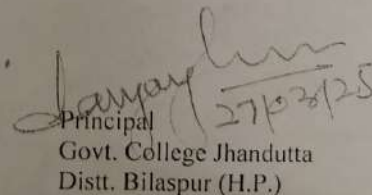 27/03/25
Principal
Govt. College Jhandutta
Distt. Bilaspur (H.P.)